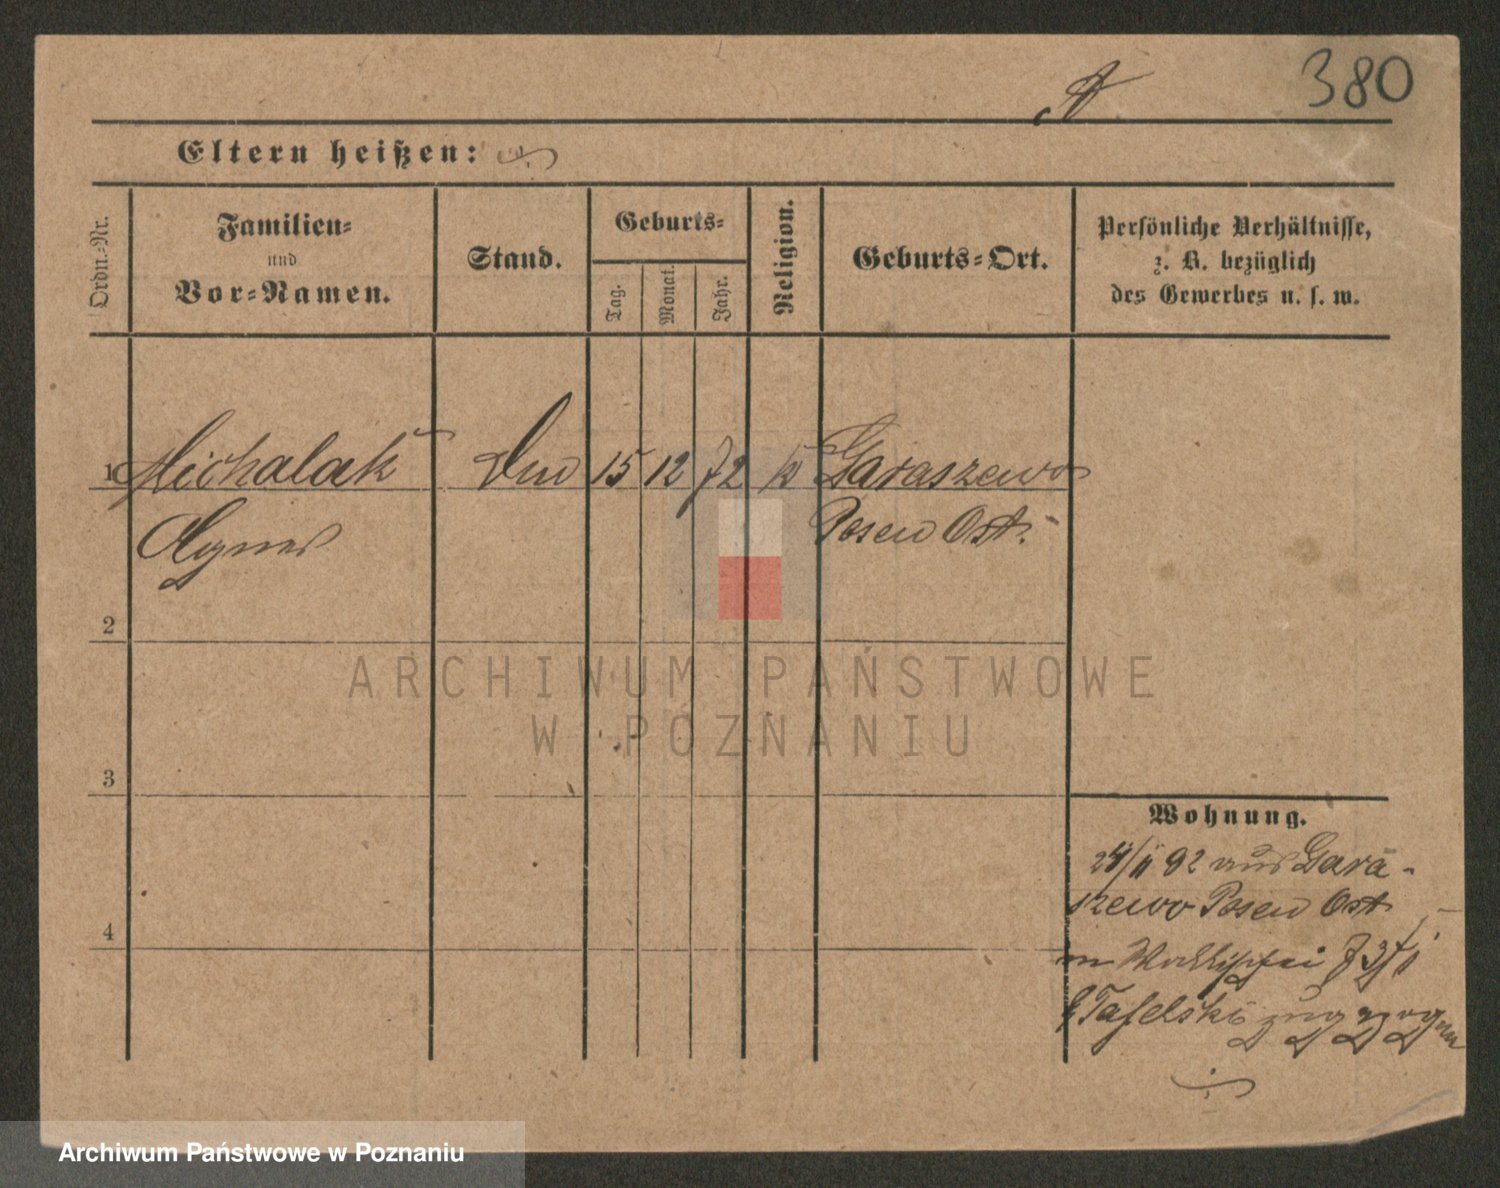 380
Eltern heißen:
Ordn.=Nr.
Familien=
und
Vor=Namen.
Stand.
Geburts=
Tag.
Monat.
Jahr.
Religion.
Geburts=Ort.
Persönliche Verhältnisse,
z. B. bezüglich
des Gewerbes u. s. w.
1 Michalak 15 12 72 k Garaszewo
Agnes Posen Ost.
2
3
4
Wohnung.
24/11 92 aus Gara-
szewo Posen Ost
Tafelski zugezogen
ARCHIWUM PAŃSTWOWE
W POZNANIU
Archiwum Państwowe w Poznaniu